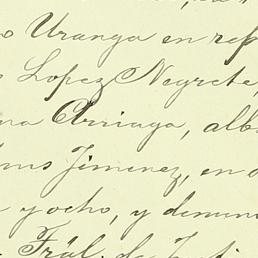 o Uranga en rep
Lopez Negrete,
na Arriaga, alb
Jimenez, en
y ocho, y denun